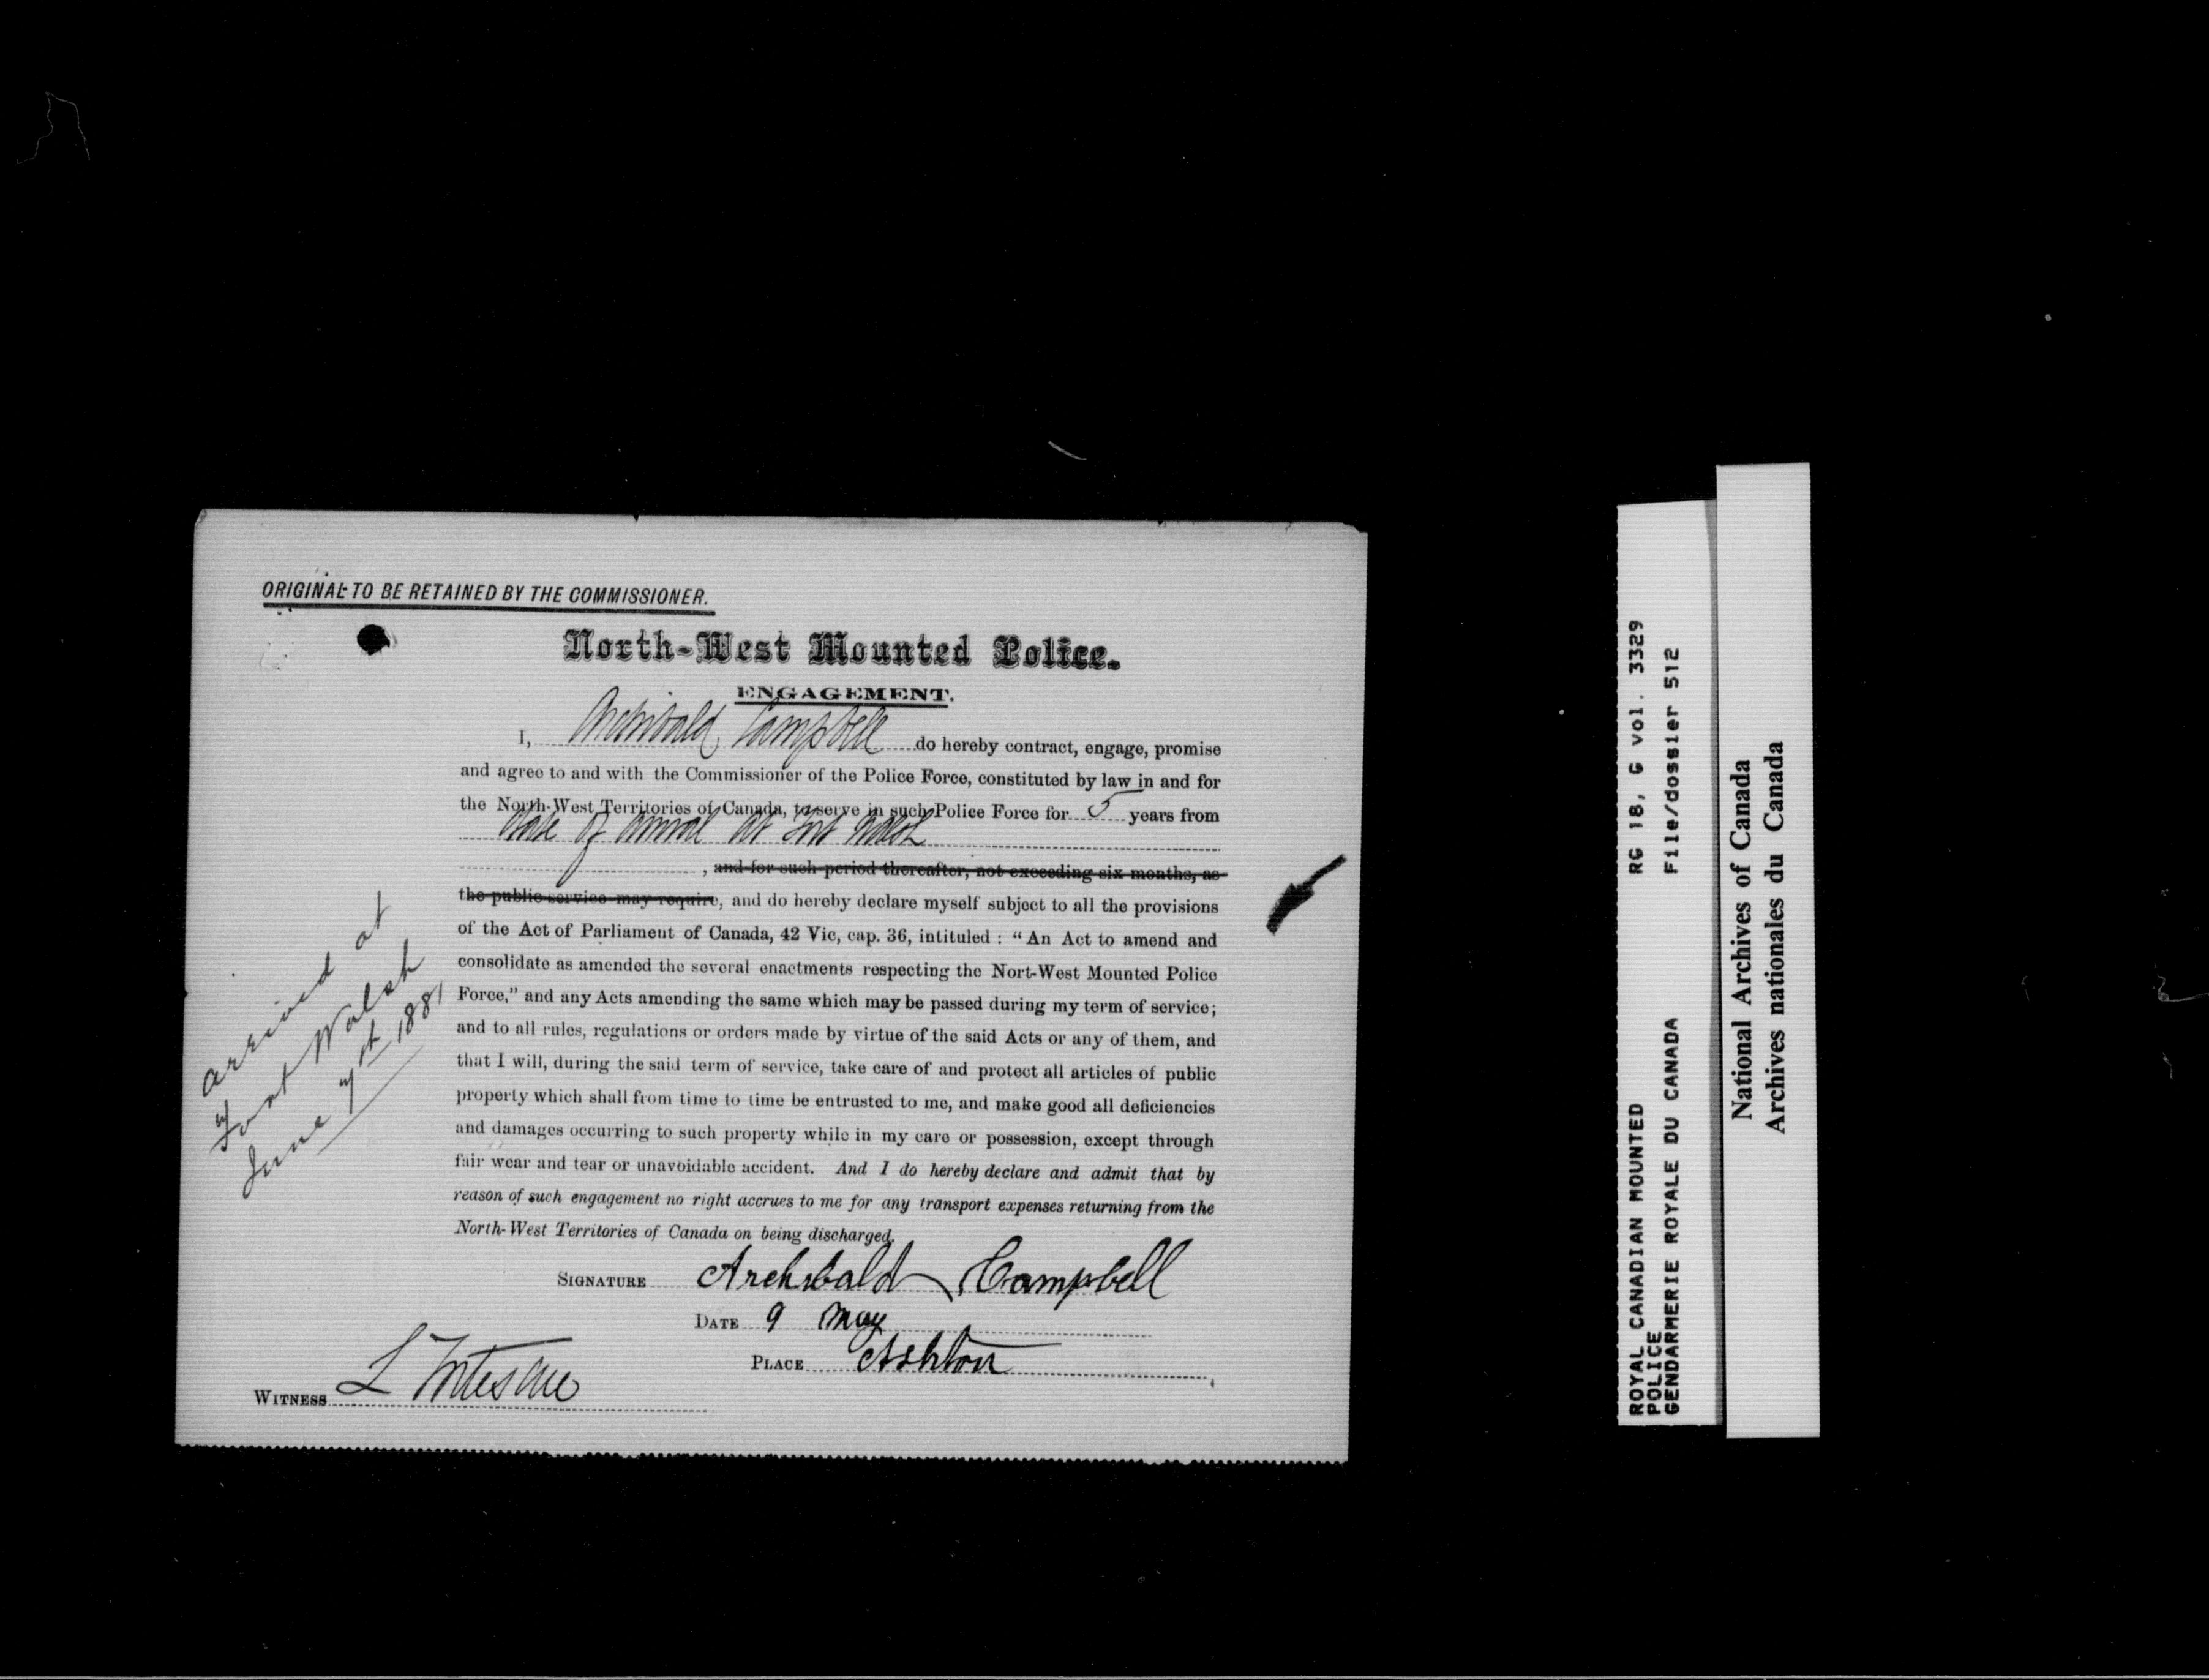 ORIGINAL TO BE RETAINED BY THE COMMISSIONER.
North-West Mounted Police.
ENGAGEMENT.
I, Archibald Campbell do hereby contract, engage, promise
and agree to and with the Commissioner of the Police Force, constituted by law in and for
the North-West Territories of Canada, to serve in such Police Force for 5 years from
date of arrival at Fort Walsh
, and for such period thereafter, not exceeding six months, as
the public service may require, and do hereby declare myself subject to all the provisions
of the Act of Parliament of Canada, 42 Vic, cap. 36, intituled : “An Act to amend and
consolidate as amended the several enactments respecting the Nort-West Mounted Police
Force,” and any Acts amending the same which may be passed during my term of service;
and to all rules, regulations or orders made by virtue of the said Acts or any of them, and
that I will, during the said term of service, take care of and protect all articles of public
property which shall from time to time be entrusted to me, and make good all deficiencies
and damages occurring to such property while in my care or possession, except through
fair wear and tear or unavoidable accident. And I do hereby declare and admit that by
reason of such engagement no right accrues to me for any transport expenses returning from the
North-West Territories of Canada on being discharged.
SIGNATURE Archibald Campbell
DATE 9 May
PLACE Ashton
WITNESS L
arrived at
Fort Walsh
June 7th 1881
ROYAL CANADIAN MOUNTED RG 18, G vol. 3329
POLICE
GENDARMERIE ROYALE DU CANADA File/dossier 512
National Archives of Canada
Archives nationales du Canada